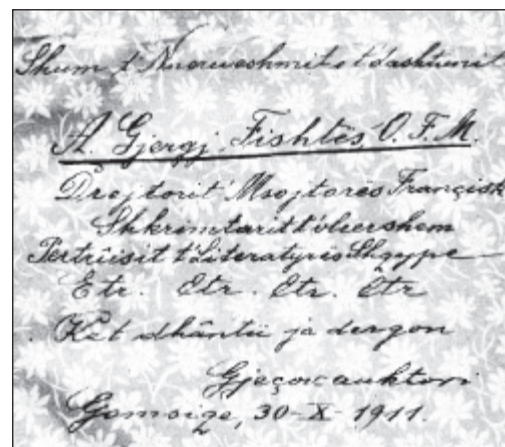 Shum t'Nnerueshmit e t'dashtunit
A. Gjergj Fishtës O. F. M.
Drejtorit Msojtorës Françisk
Shkrimtarit t'vlershem
Përtrîisit t'Literatyrës Shqype
Etr. Etr. Etr. Etr
Kët dhântii ja dergon
Gjeçov auktori
Gomsiqe, 30-X-1911.